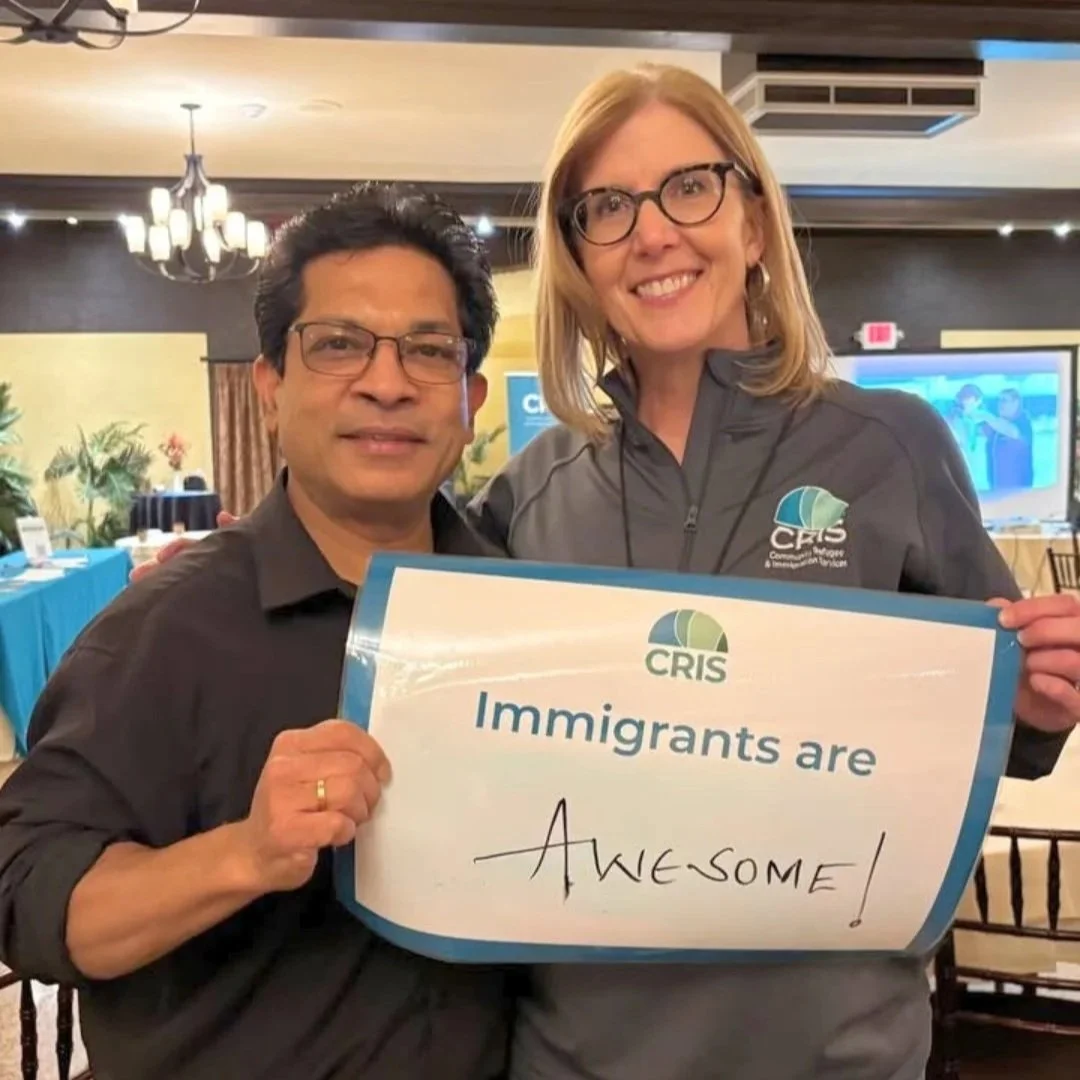 CRIS
Community Refugee
& Immigration Services
CRIS
Immigrants are
AWESOME!